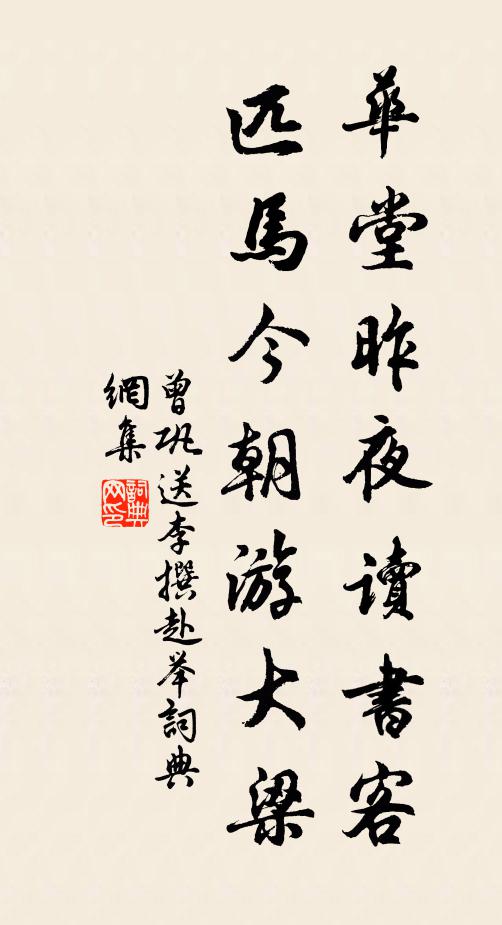 華堂昨夜讀書客
匹馬今朝游大梁
曾巩送李撰赴举詞典
網集
詞典
网印